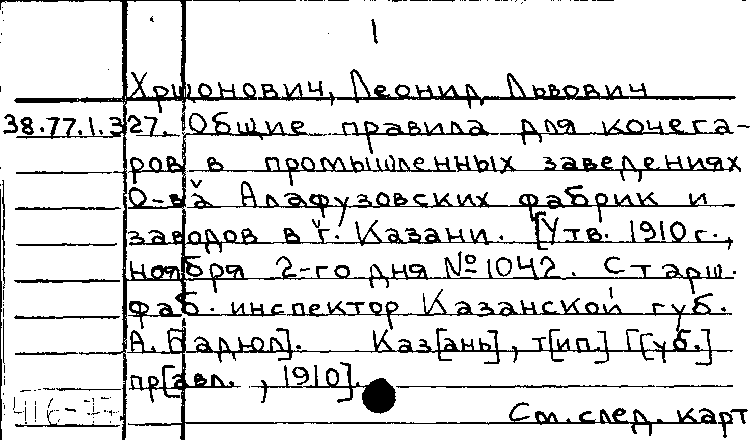 1
Хршонович, Леонид Львович
38.77.1.327. Общие правила для кочега-
ров в промышленных заведениях
О-ва Алафузовских фабрик и
заводов в г. Казани. [Утв. 1910 г.,
ноября 2-го дня № 1042. Старш.
фаб. инспектор Казанской губ.
А. [Бадюл]. Каз[ань], т[ип.] Г[уб.]
пр[авл., 1910].
416-77
См. след. карт